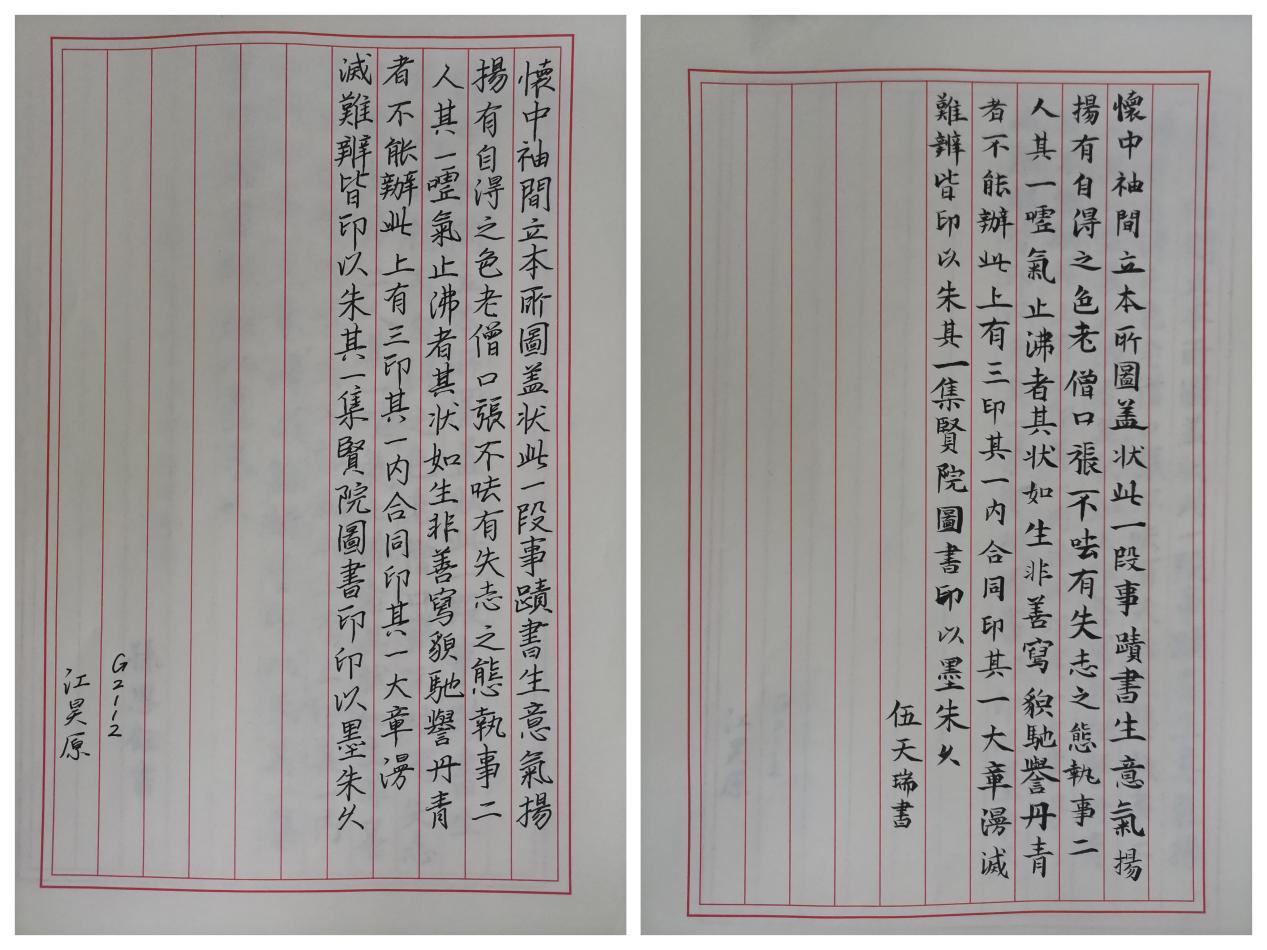 懷中袖間立本所圖盖状此一段事蹟書生意氣揚
揚有自得之色老僧口張不呿有失志之態執事二
人其一嘘氣止沸者其状如生非善寫貌馳譽丹青
者不能辦此上有三印其一内合同印其一大章漫
滅難辨皆印以朱其一集賢院圖書印印以墨朱久
G2112
江昊原
懷中袖間立本所圖盖状此一段事蹟書生意氣揚
揚有自得之色老僧口張不呿有失志之態執事二
人其一嘘氣止沸者其状如生非善寫貌馳譽丹青
者不能辦此上有三印其一内合同印其一大章漫滅
難辨皆印以朱其一集賢院圖書印以墨朱久
伍天瑞書